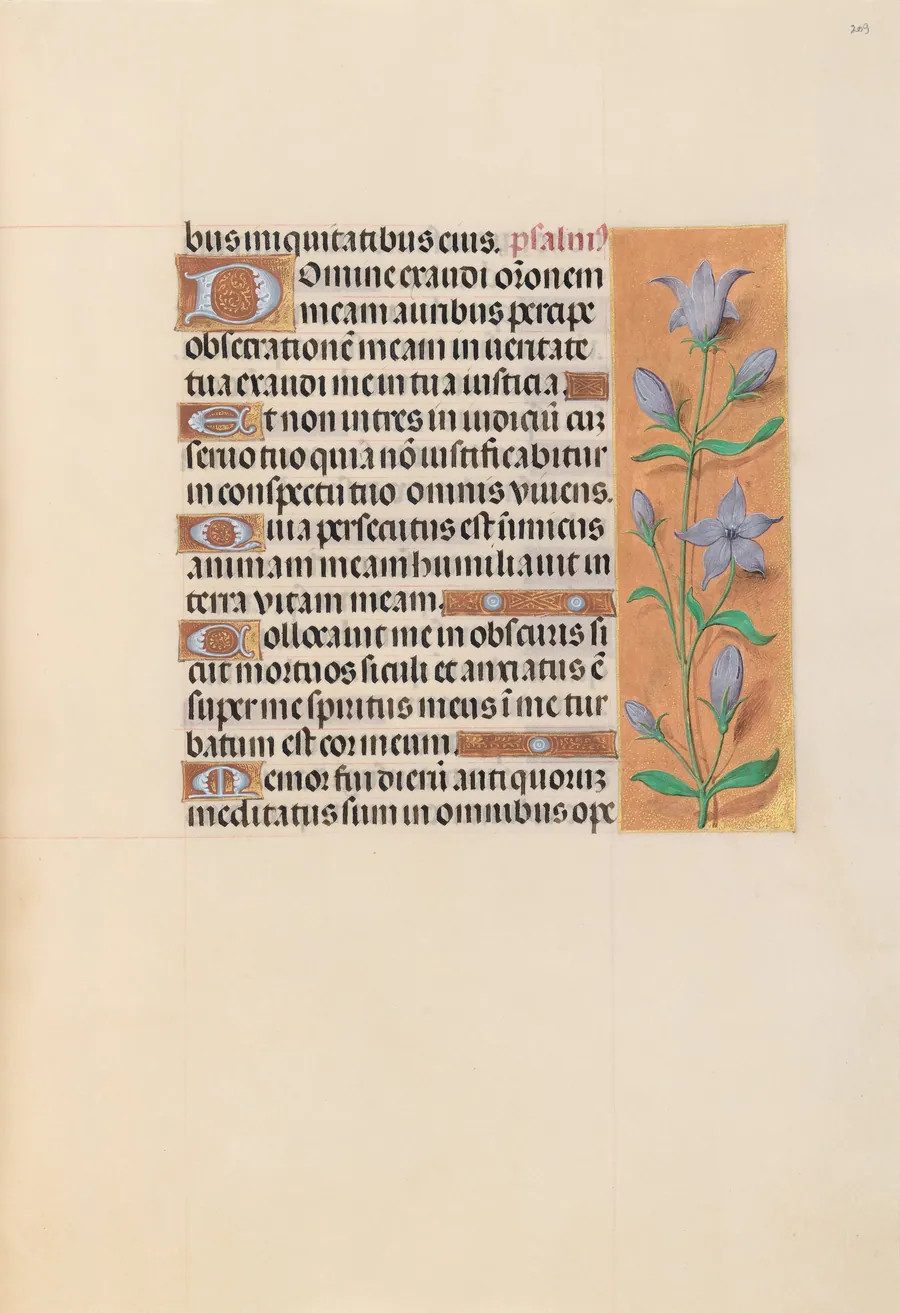 209
bus iniquitatibus eius. psalmꝰ
Domine exaudi or̄onem
meam auribus percipe
obsecrationē meam in ueritate
tua exaudi me in tua iusticia.
Et non intres in iudiciū cuꝫ
seruo tuo quia nō iustificabitur
in conspectu tuo omnis viuens.
Quia persecutus est īnimicus
animam meam humiliauit in
terra vitam meam.
Collocauit me in obscuris si
cut mortuos siculi et anxiatus ē
super me spiritus meus ī me tur
batum est cor meum.
Memor fui dierū antiquoruꝫ
meditatus sum in omnibus ope